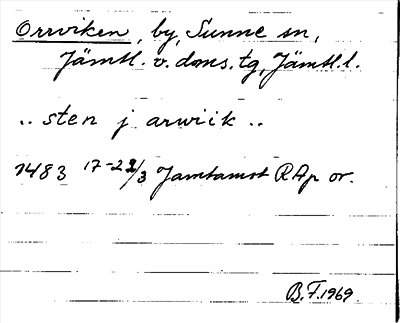 Orrviken, by, Sunne sn,
Jämtl. v. doms. tg, Jämtl. l.
.. sten j arwiik ..
1483 17-22/3 Jamtamot RAp or.
B.F. 1969.